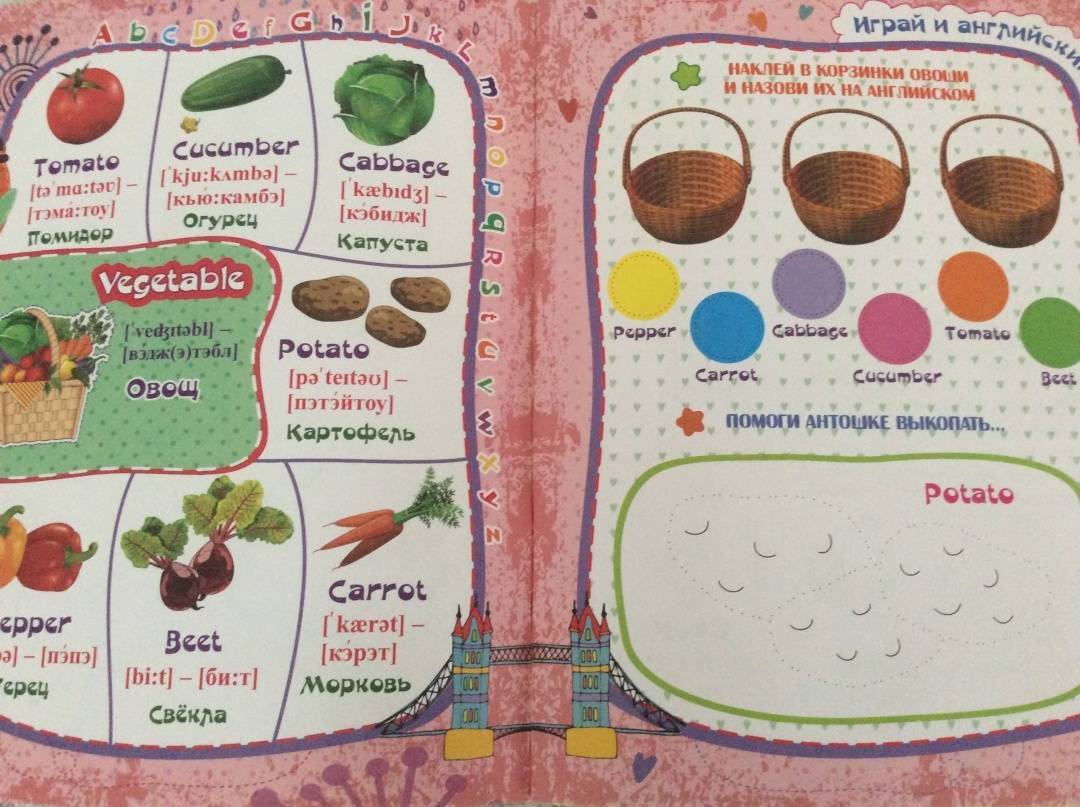 A b c D e f G h i J k L m n o p q R s t u v w x y z
Tomato
[tə'mɑ:təʊ] –
[тэмá:тоу]
Помидор
Cucumber
['kju:kʌmbə] –
[кью́:камбэ]
Огурец
Cabbage
['kæbɪdʒ] –
[кэ́бидж]
Капуста
Vegetable
['vedʒɪtəbl] –
[вэ́дж(э)тэбл]
Овощ
Potato
[pə'teɪtəʊ] –
[пэтэ́йтоу]
Картофель
epper
ə] – [пэ́пэ]
ерец
Beet
[bi:t] – [би:т]
Свёкла
Carrot
['kærət] –
[кэ́рэт]
Морковь
Играй и английский
НАКЛЕЙ В КОРЗИНКИ ОВОЩИ
И НАЗОВИ ИХ НА АНГЛИЙСКОМ
Pepper
Carrot
Cabbage
Cucumber
Tomato
Beet
ПОМОГИ АНТОШКЕ ВЫКОПАТЬ...
Potato